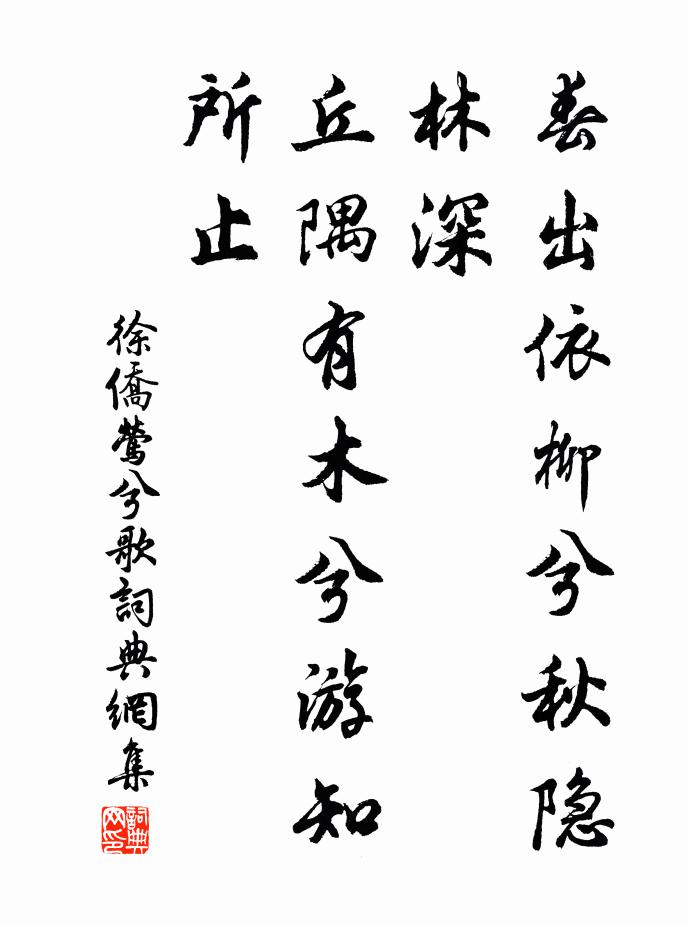 春出依柳兮秋隐
林深
丘隅有木兮游知
所止
徐僑鶯兮歌詞典網集
詞典网印